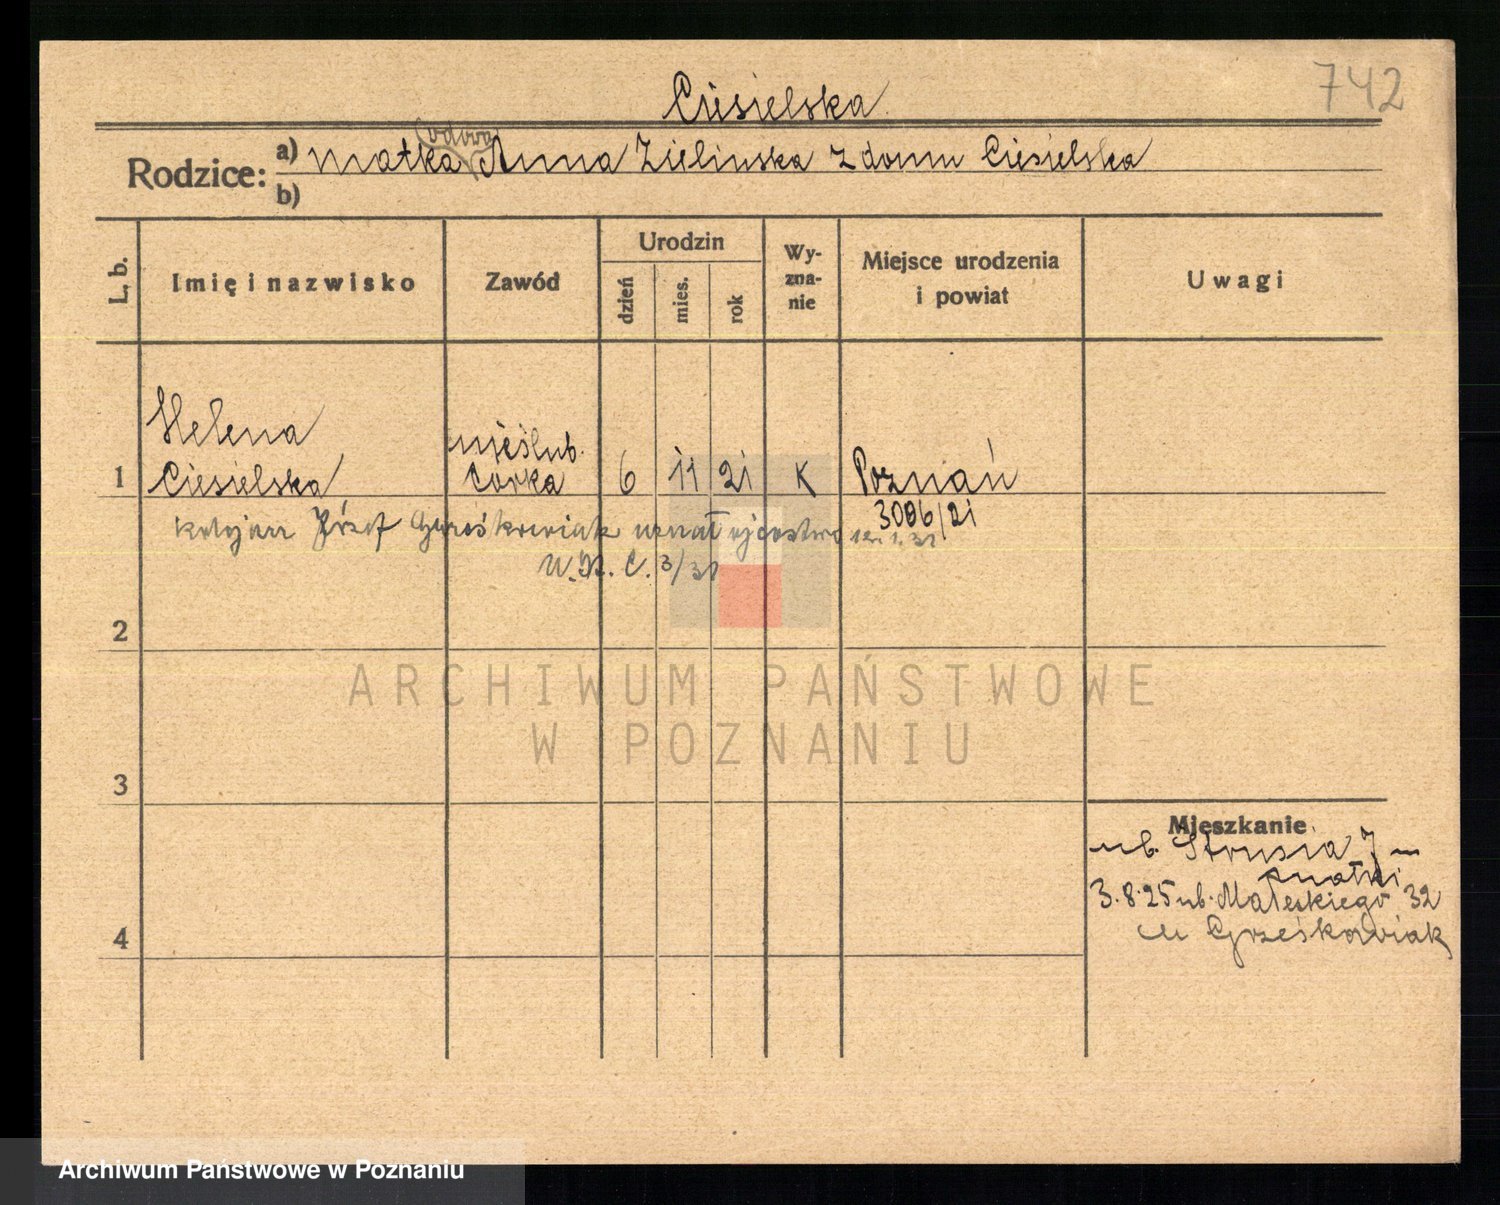 742
Ciesielska
(wdowa)
Rodzice: a) matka Anna Zielinska z domu Ciesielska
b)
L. b.
Imię i nazwisko
Zawód
Urodzin
dzień
mies.
rok
Wy-
zna-
nie
Miejsce urodzenia
i powiat
Uwagi
Helena
nieślub.
1 Ciesielska córka 6 11 21 K Poznań
3086/21
Józef Grześkowiak uznał ojcostwo
2
ARCHIWUM PAŃSTWOWE
W POZNANIU
3
Mieszkanie
ub. Strusia 7
matki
3.8.25 ub. Małeckiego 32
Grześkowiak
4
Archiwum Państwowe w Poznaniu